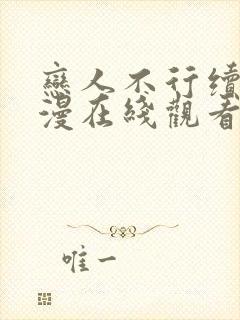 戀人不行續
漫在綫觀看
唯一